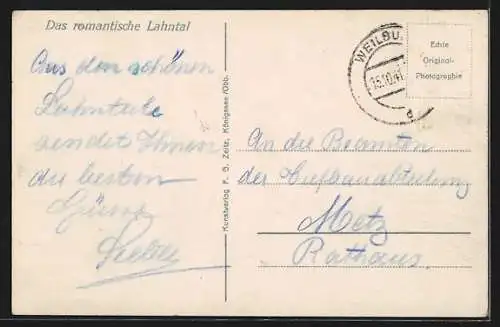 Das romantische Lahntal
Aus dem schönen
Lahntale
sendet Ihnen
die besten
Grüsse
Kunstverlag F. G. Zeitz, Königssee/Obb.
WEILBU
15.10.41
d
Echte
Original-
Photographie
An die Beamten
der Tiefbauabteilung
Metz
Rathaus.